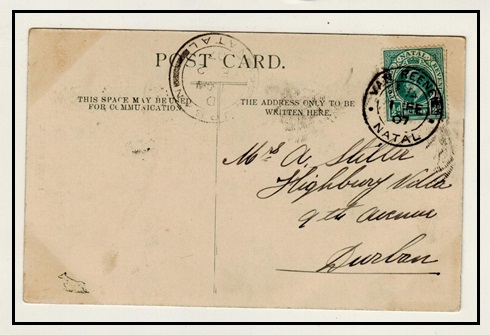 POST CARD.
THIS SPACE MAY BE USED
FOR COMMUNICATION
THE ADDRESS ONLY TO BE
WRITTEN HERE.
NATAL
VAN REENEN
07
NATAL
Mrs A. Stiller
Highbury Villa
9th Avenue
Durban